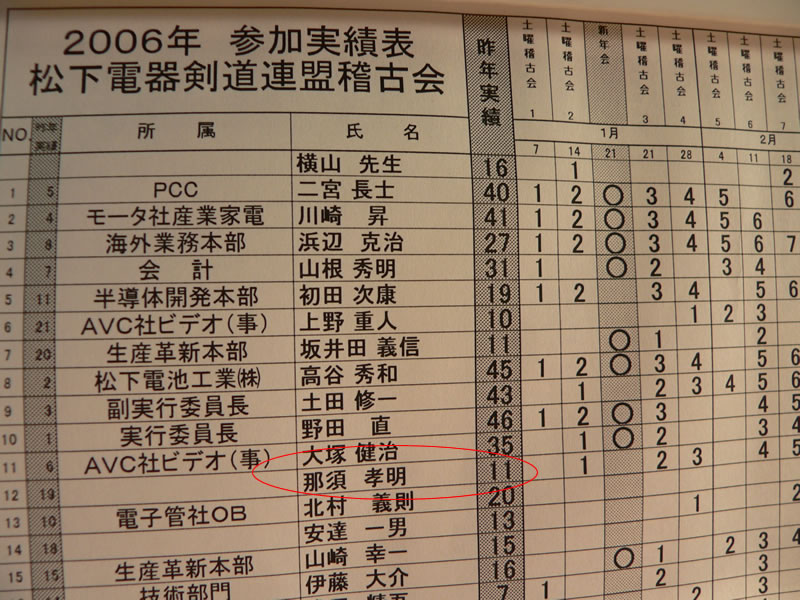 2006年 参加実績表
松下電器剣道連盟稽古会
昨年実績
土曜稽古会 1
土曜稽古会 2
新年会
土曜稽古会 3
土曜稽古会 4
土曜稽古会 5
土曜稽古会 6
土曜稽古会 7
1月 2月
NO 昨年実績 所属 氏名 7 14 21 21 28 4 11 18
横山 先生 16 1 2
1 5 PCC 二宮 長士 40 1 2 ○ 3 4 5 6
2 4 モータ社産業家電 川崎 昇 41 1 2 ○ 3 4 5 6
3 8 海外業務本部 浜辺 克治 27 1 2 ○ 3 4 5 6 7
4 7 会 計 山根 秀明 31 1 ○ 2 3 4
5 11 半導体開発本部 初田 次康 19 1 2 3 4 5 6
6 21 AVC社ビデオ(事) 上野 重人 10 1 2 3
7 20 生産革新本部 坂井田 義信 11 ○ 1 2
8 2 松下電池工業㈱ 高谷 秀和 45 1 2 ○ 3 4 5 6
9 3 副実行委員長 土田 修一 43 1 2 3 4 5 6
10 1 実行委員長 野田 直 46 1 2 ○ 3 4 5
11 6 AVC社ビデオ(事) 大塚 健治 35 1 ○ 2 3 4
12 19 那須 孝明 11 1 2 3 4 5
13 10 電子管社OB 北村 義則 20
14 18 安達 一男 13 1 2
15 15 生産革新本部 山崎 幸一 15
技術部門 伊藤 大介 16 ○ 1 2 3 4
7 1 2 3